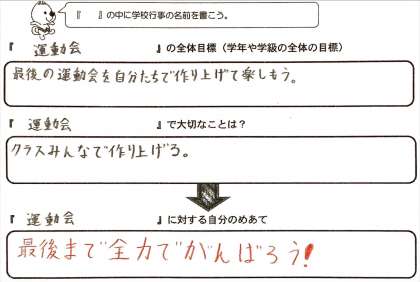 『　　』の中に学校行事の名前を書こう。
『 運動会 』の全体目標（学年や学級の全体の目標）
最後の運動会を自分たちで作り上げて楽しもう。
『 運動会 』で大切なことは？
クラスみんなで作り上げろ。
『 運動会 』に対する自分のめあて
最後まで全力でがんばろう!